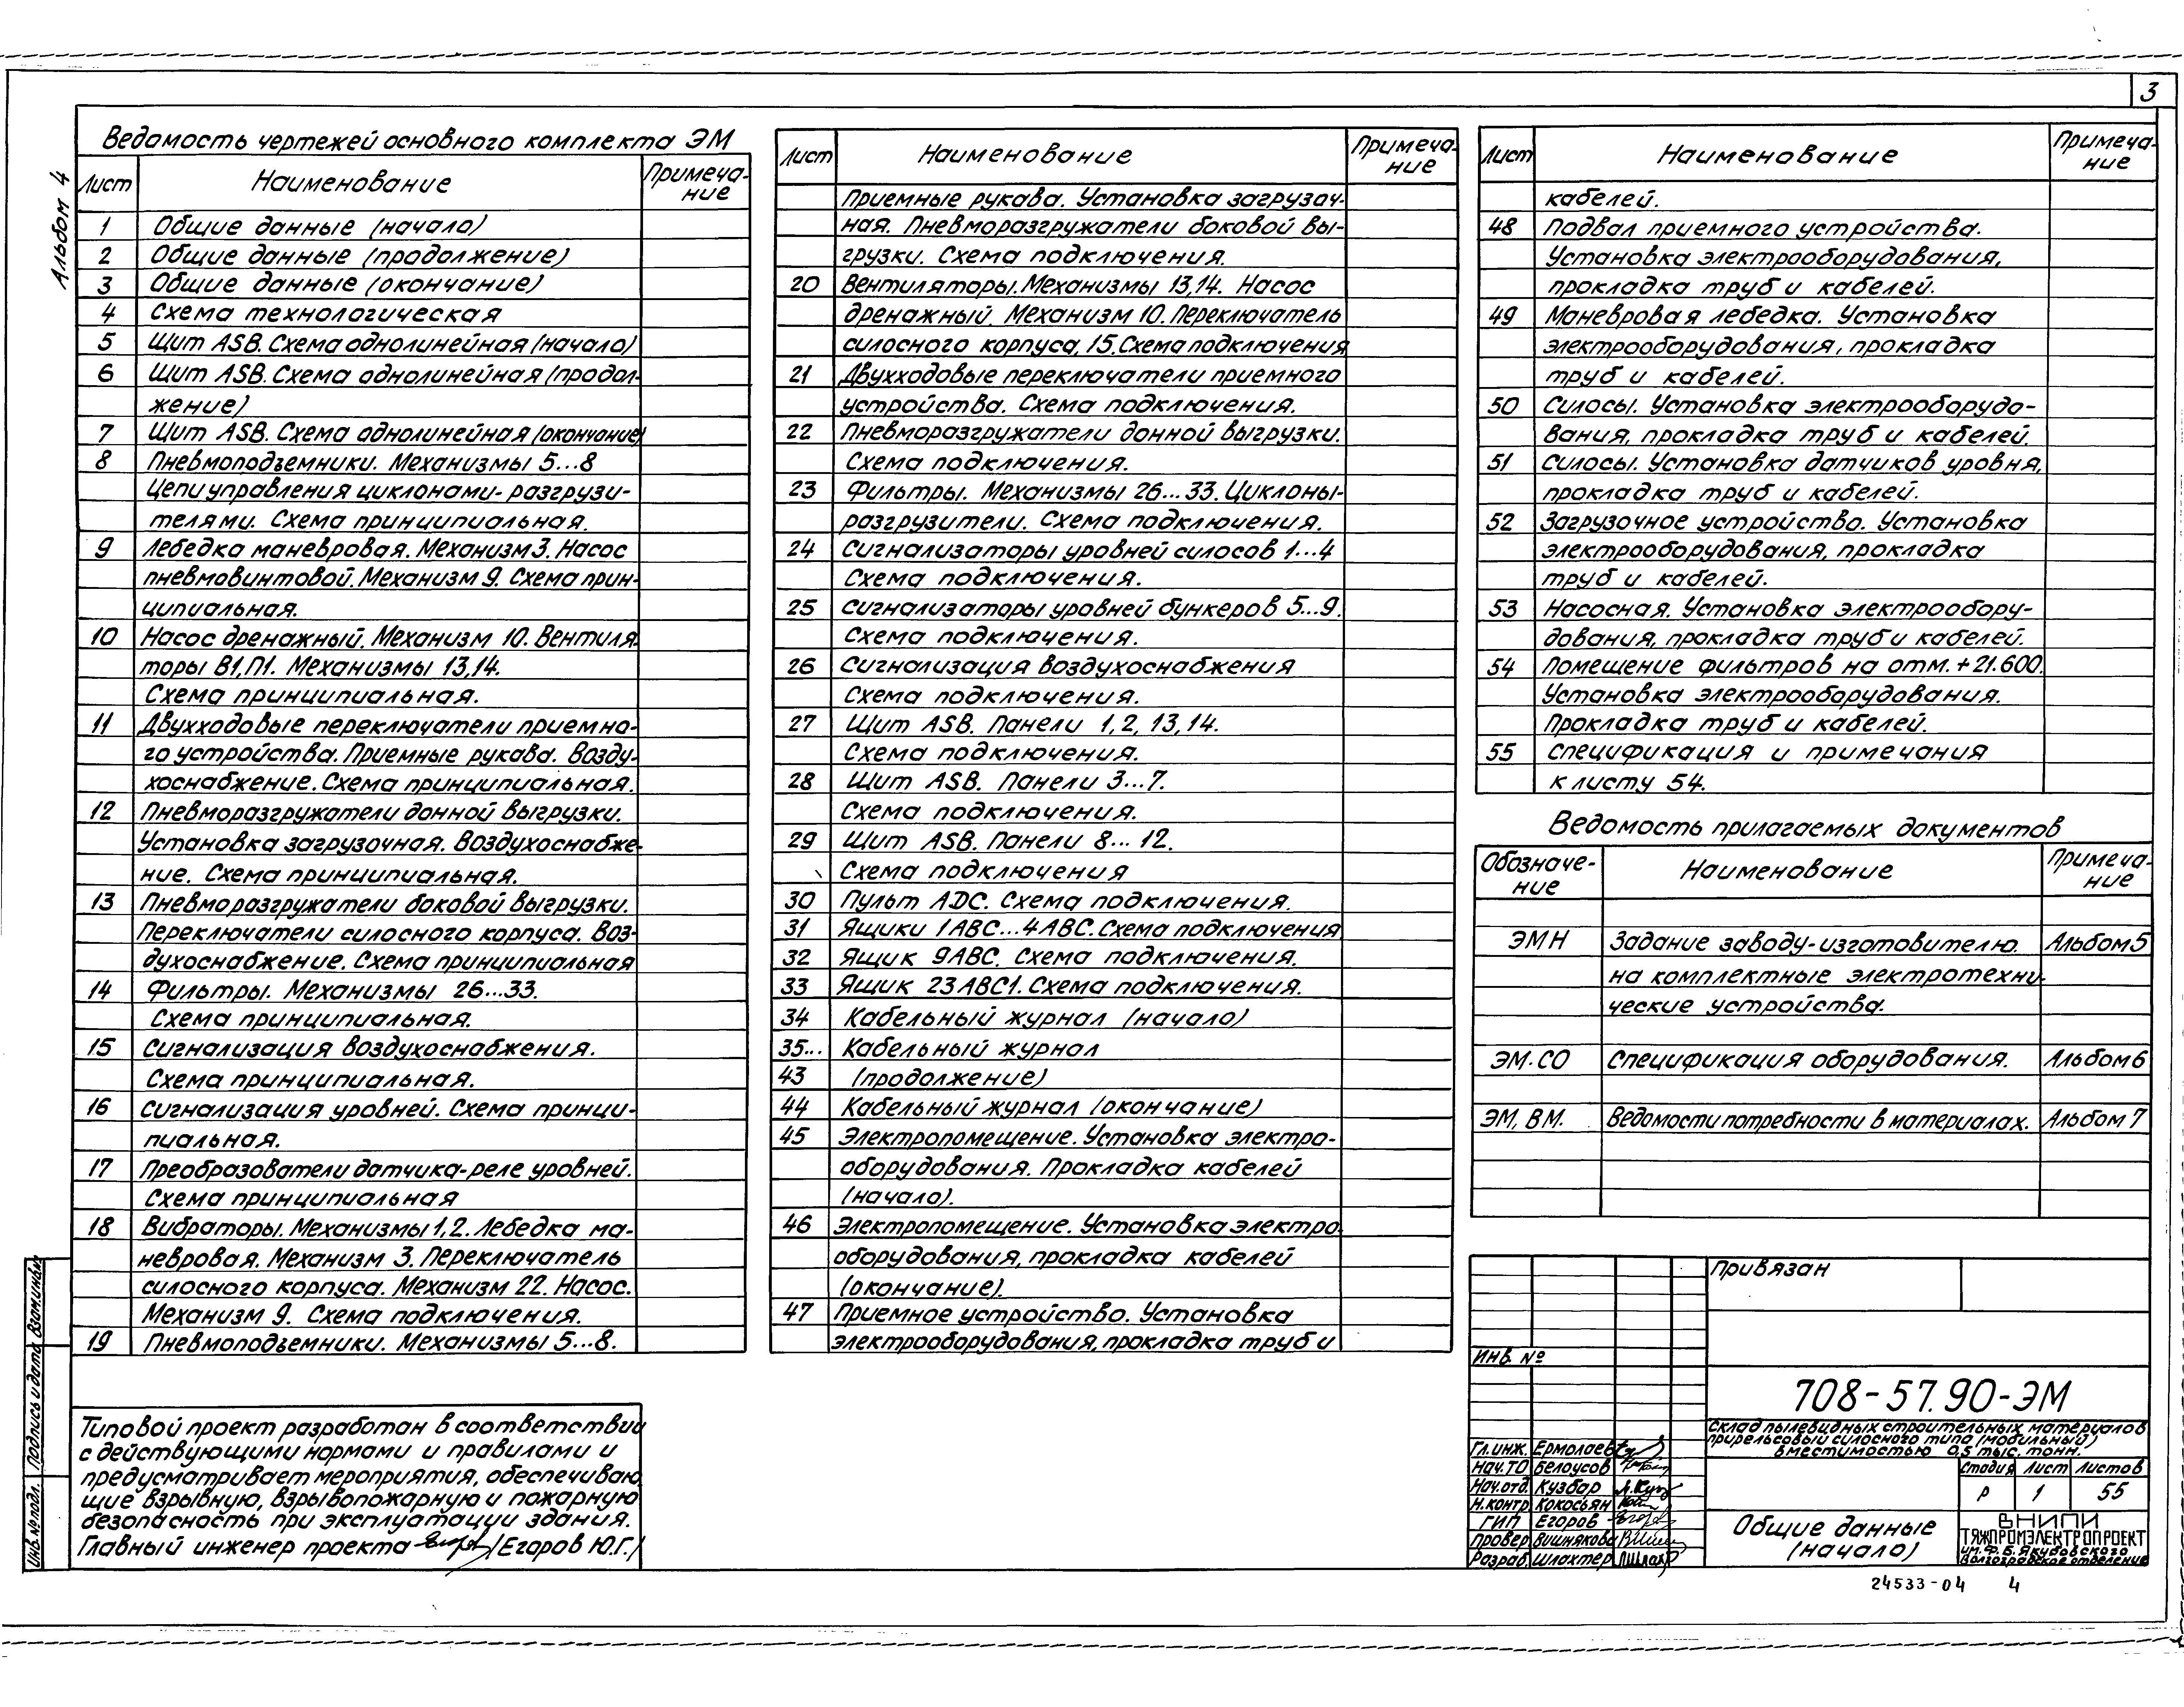 3
Альбом 4
Ведомость чертежей основного комплекта ЭМ
Лист Наименование Примеча-
ние
1 Общие данные (начало)
2 Общие данные (продолжение)
3 Общие данные (окончание)
4 Схема технологическая
5 Щит ASB. Схема однолинейная (начало)
6 Щит ASB. Схема однолинейная (продол-
жение)
7 Щит ASB. Схема однолинейная (окончание)
8 Пневмоподъемники. Механизмы 5...8
Цепи управления циклонами-разгрузи-
телями. Схема принципиальная.
9 Лебедка маневровая. Механизм 3. Насос
пневмовинтовой. Механизм 9. Схема прин-
ципиальная.
10 Насос дренажный. Механизм 10. Вентиля-
торы В1, П1. Механизмы 13,14.
Схема принципиальная.
11 Двухходовые переключатели приемно-
го устройства. Приемные рукава. Возду-
хоснабжение. Схема принципиальная.
12 Пневморазгружатели донной выгрузки.
Установка загрузочная. Воздухоснабже-
ние. Схема принципиальная.
13 Пневморазгружатели боковой выгрузки.
Переключатели силосного корпуса. Воз-
духоснабжение. Схема принципиальная
14 Фильтры. Механизмы 26...33.
Схема принципиальная.
15 Сигнализация воздухоснабжения.
Схема принципиальная.
16 Сигнализация уровней. Схема принци-
пиальная.
17 Преобразователи датчика-реле уровней.
Схема принципиальная
18 Вибраторы. Механизмы 1,2. Лебедка ма-
невровая. Механизм 3. Переключатель
силосного корпуса. Механизм 22. Насос.
Механизм 9. Схема подключения.
19 Пневмоподъемники. Механизмы 5...8.
Лист Наименование Примеча-
ние
Приемные рукава. Установка загрузоч-
ная. Пневморазгружатели боковой вы-
грузки. Схема подключения.
20 Вентиляторы. Механизмы 13,14. Насос
дренажный. Механизм 10. Переключатель
силосного корпуса, 15. Схема подключения
21 Двухходовые переключатели приемного
устройства. Схема подключения.
22 Пневморазгружатели донной выгрузки.
Схема подключения.
23 Фильтры. Механизмы 26...33. Циклоны-
разгрузители. Схема подключения.
24 Сигнализаторы уровней силосов 1...4
Схема подключения.
25 Сигнализаторы уровней бункеров 5...9.
Схема подключения.
26 Сигнализация воздухоснабжения
Схема подключения.
27 Щит ASB. Панели 1, 2, 13, 14.
Схема подключения.
28 Щит ASB. Панели 3...7.
Схема подключения.
29 Щит ASB. Панели 8...12.
Схема подключения
30 Пульт ADC. Схема подключения.
31 Ящики 1ABC...4ABC. Схема подключения
32 Ящик 9ABC. Схема подключения.
33 Ящик 23ABC1. Схема подключения.
34 Кабельный журнал (начало)
35... Кабельный журнал
43 (продолжение)
44 Кабельный журнал (окончание)
45 Электропомещение. Установка электро-
оборудования. Прокладка кабелей
(начало).
46 Электропомещение. Установка электро-
оборудования, прокладка кабелей
(окончание).
47 Приемное устройство. Установка
электрооборудования, прокладка труб и
Лист Наименование Примеча-
ние
кабелей.
48 Подвал приемного устройства.
Установка электрооборудования,
прокладка труб и кабелей.
49 Маневровая лебедка. Установка
электрооборудования, прокладка
труб и кабелей.
50 Силосы. Установка электрооборудо-
вания, прокладка труб и кабелей.
51 Силосы. Установка датчиков уровня,
прокладка труб и кабелей.
52 Загрузочное устройство. Установка
электрооборудования, прокладка
труб и кабелей.
53 Насосная. Установка электрообору-
дования, прокладка труб и кабелей.
54 Помещение фильтров на отм. +21.600.
Установка электрооборудования.
Прокладка труб и кабелей.
55 Спецификация и примечания
к листу 54.
Ведомость прилагаемых документов
Обозначе-
ние Наименование Примеча-
ние
ЭМН Задание заводу-изготовителю. Альбом 5
на комплектные электротехни-
ческие устройства.
ЭМ.СО Спецификация оборудования. Альбом 6
ЭМ, ВМ. Ведомости потребности в материалах. Альбом 7
Типовой проект разработан в соответствии
с действующими нормами и правилами и
предусматривает мероприятия, обеспечиваю-
щие взрывную, взрывопожарную и пожарную
безопасность при эксплуатации здания.
Главный инженер проекта Егоров /Егоров Ю.Г./
Инв.№подл. Подпись и дата Взам.инв.№
Привязан
Инв. №
708-57.90-ЭМ
Склад пылевидных строительных материалов
прирельсовый силосного типа (мобильный)
вместимостью 0,5 тыс. тонн.
Гл.инж. Ермолаев
Нач.ТО Белоусов
Нач.отд. Кузбар
Н.контр Кокосьян
ГИП Егоров
Провер Вишнякова
Разраб Шлахтер
Стадия Лист Листов
Р 1 55
Общие данные
(начало)
ВНИПИ
ТЯЖПРОМЭЛЕКТРОПРОЕКТ
им. Ф.Б. Якубовского
Волгоградское отделение
24533-04 4